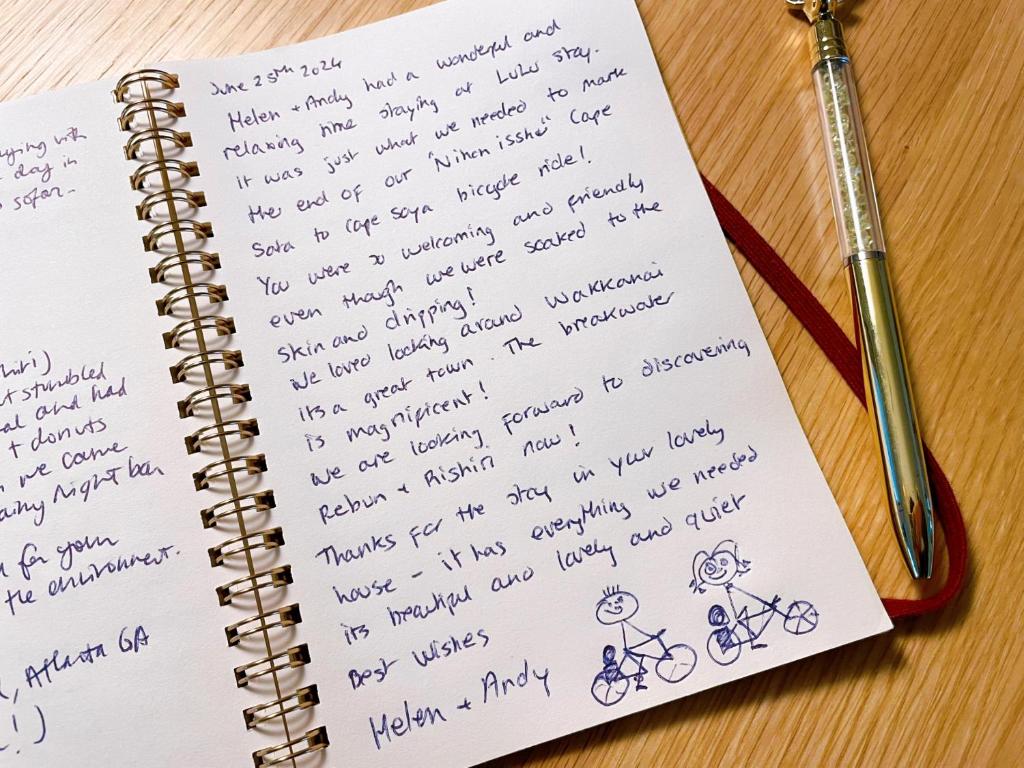 aying with
day in
so far.
hiti)
t stumbled
al and had
+ donuts
we came
rainy night ban
for your
the environment.
, Atlanta GA
!)
June 25th 2024
Helen + Andy had a wonderful and
relaxing time staying at LuLu Stay.
It was just what we needed to mark
the end of our "Nihon isshu" Cape
Sata to Cape Soya bicycle ride!
You were so welcoming and friendly
even though we were soaked to the
skin and dripping!
We loved looking around Wakkanai
its a great town. The breakwater
is magnificent!
We are looking forward to discovering
Rebun + Rishiri now!
Thanks for the stay in your lovely
house - it has everything we needed
its beautiful and lovely and quiet
Best Wishes
Helen + Andy